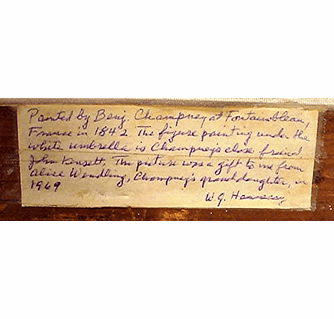 Painted by Benj. Champney at Fontainbleau,
France in 1842. The figure painting under the
white umbrella is Champney's close friend
John Kensett. The picture was a gift to me from
Alice Wendling, Champney's granddaughter, in
1969
W G. Hennessey